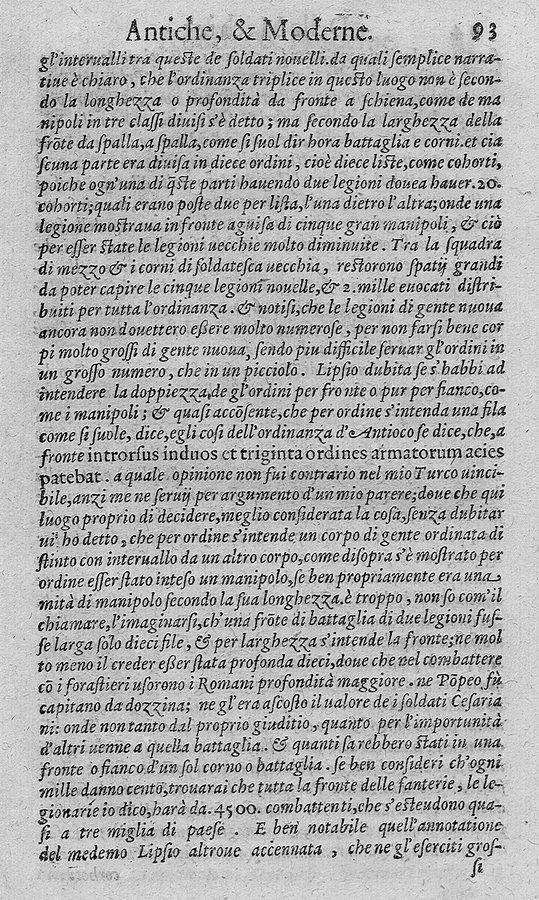 Antiche, & Moderne. 93
gl'interualli tra queste de soldati nouelli.da quali semplice narra-
tiue è chiaro, che l'ordinanza triplice in questo luogo non è secon-
do la longhezza o profondità da fronte a schiena,come de ma
nipoli in tre classi diuisi s'è detto; ma secondo la larghezza della
frõte da spalla,a spalla,come si suol dir hora battaglia e corni.et cia
scuna parte era diuisa in diece ordini, cioè diece liste,come cohorti,
poiche ogn'una di q̃ste parti hauendo due legioni douea hauer.20.
cohorti;quali erano poste due per lista,l'una dietro l'altra;onde una
legione mostraua in fronte aguisa di cinque gran manipoli, & ciò
per esser state le legioni uecchie molto diminuite. Tra la squadra
di mezzo & i corni di soldatesca uecchia, restorono spatij grandi
da poter capire le cinque legioni nouelle,& 2.mille euocati distri-
buiti per tutta l'ordinanza.& notisi,che le legioni di gente nuoua
ancora non douettero essere molto numerose, per non farsi bene cor
pi molto grossi di gente nuoua, sendo piu difficile seruar gl'ordini in
un grosso numero, che in un picciolo. Lipsio dubita se s'habbi ad
intendere la doppiezza,de gl'ordini per fronte o pur per fianco,co-
me i manipoli; & quasi accõsente,che per ordine s'intenda una fila
come si suole, dice,egli cosi dell'ordinanza d'Antioco se dice,che,a
fronte introrsus induos et triginta ordines armatorum acies
patebat. a quale opinione non fui contrario nel mio Turco uinci-
bile,anzi me ne seruij per argomento d'un mio parere;doue che qui
luogo proprio di decidere,meglio considerata la cosa,senza dubitar
ui ho detto, che per ordine s'intende un corpo di gente ordinata di
stinto con interuallo da un altro corpo,come disopra s'è mostrato per
ordine esser stato inteso un manipolo,se ben propriamente era una
mità di manipolo secondo la sua longhezza.è troppo, non so com'il
chiamare,l'imaginarsi,ch'una frõte di battaglia di due legioni fus-
se larga solo dieci file, & per larghezza s'intende la fronte;ne mol
to meno il creder esser stata profonda dieci,doue che nel combattere
cõ i forastieri usorono i Romani profondità maggiore. ne Põpeo fù
capitano da dozzina; ne gl'era ascosto il valore de i soldati Cesaria
ni: onde non tanto dal proprio giuditio, quanto per l'importunità
d'altri uenne a quella battaglia. & quanti sarebbero stati in una
fronte o fianco d'un sol corno o battaglia. se ben consideri ch'ogni
mille danno centõ,trouarai che tutta la fronte delle fanterie, le le-
gionarie io dico,harà da. 4500. combattenti,che s'esteudono qua-
si a tre miglia di paese . E ben notabile quell'annotatione
del medemo Lipsio altroue accennata , che ne gl'eserciti gros-
si